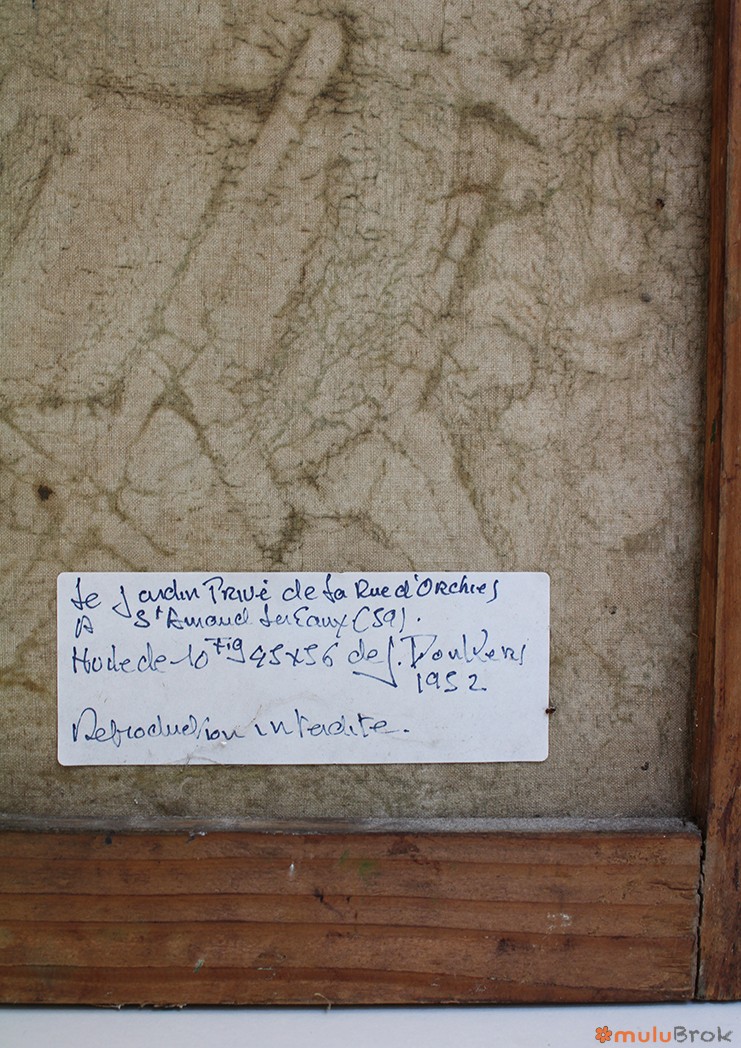 Le Jardin Privé de la Rue d'Orchies
A St Amand les Eaux (59).
Huile de 10 Fig 45x56 de J. Donkers
1952
Reproduction interdite.
muluBrok